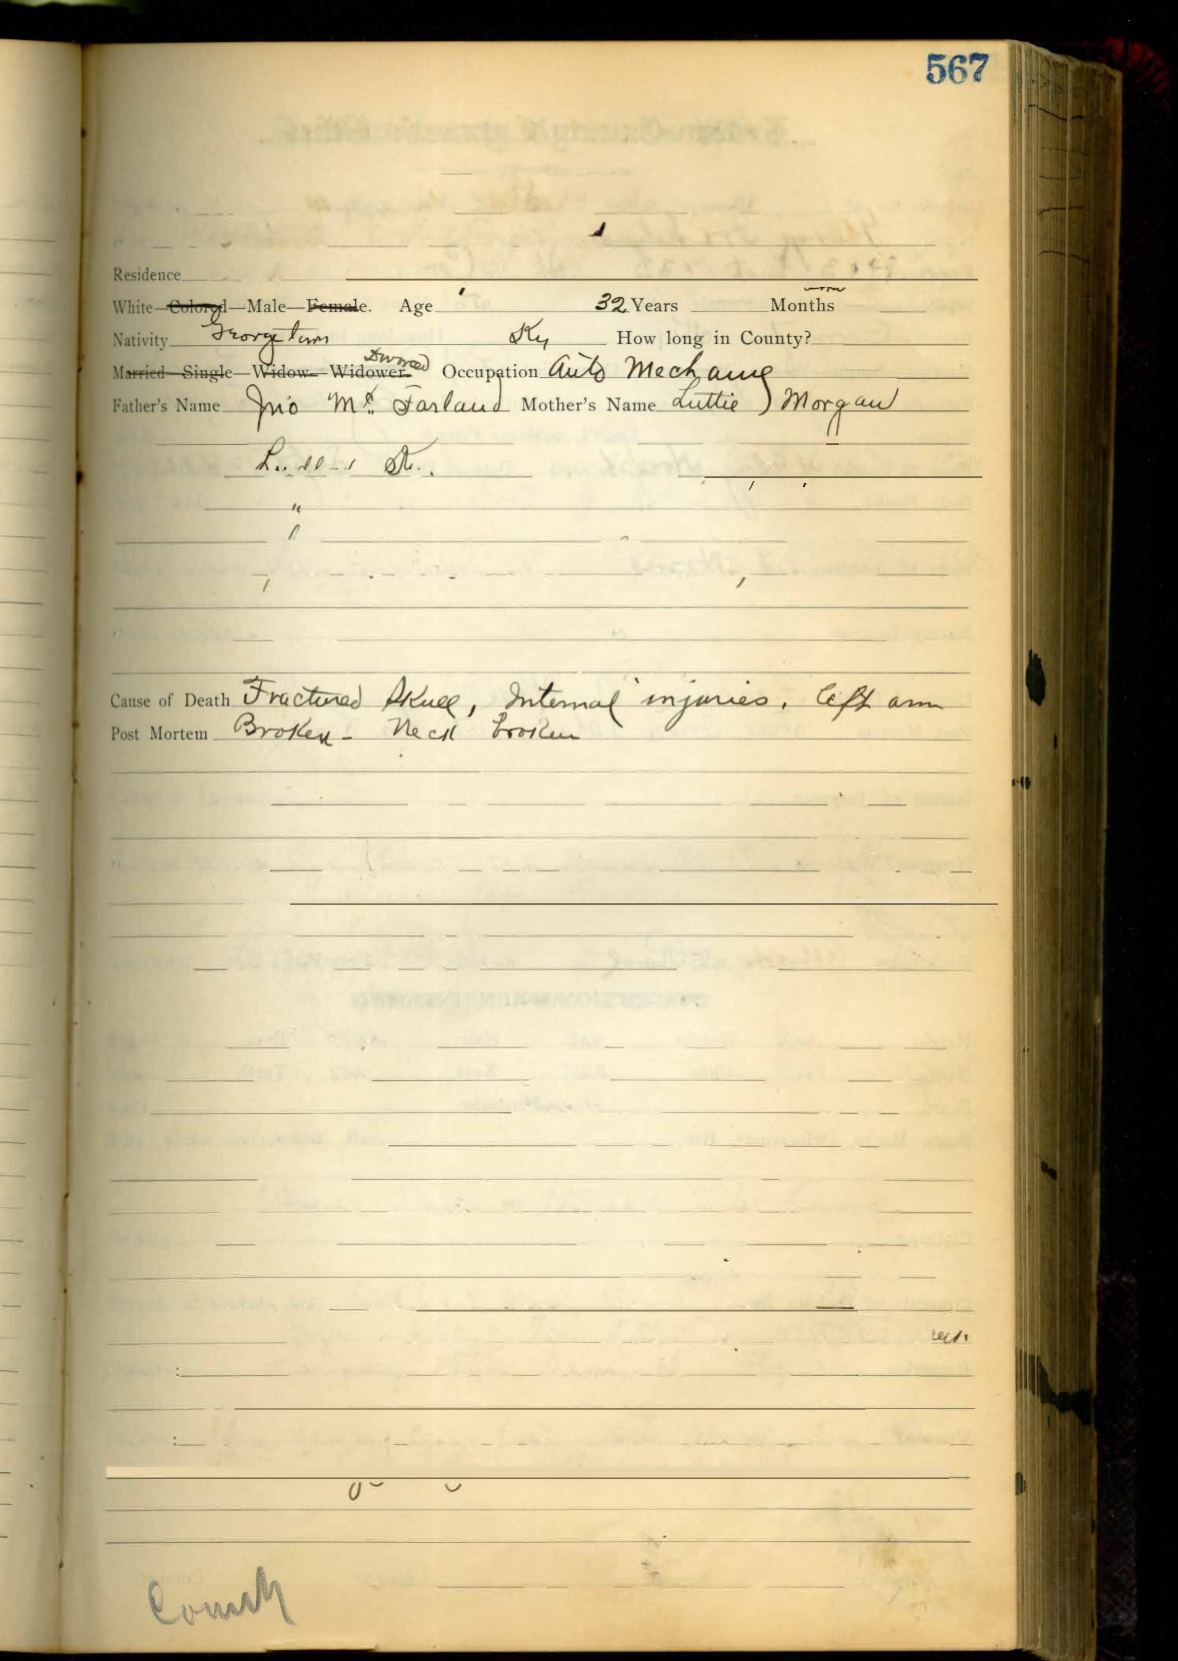 567
Residence
White—Colored—Male—Female. Age 32 Years Months
Nativity Georgetown Ky How long in County?
Divorced
Married—Single—Widow—Widower. Occupation Auto Mechanic
Father's Name Jno Mc Farland Mother's Name Luttie Morgan
Cause of Death Fractured Skull, Internal injuries. left arm
Post Mortem Broken - Neck broken